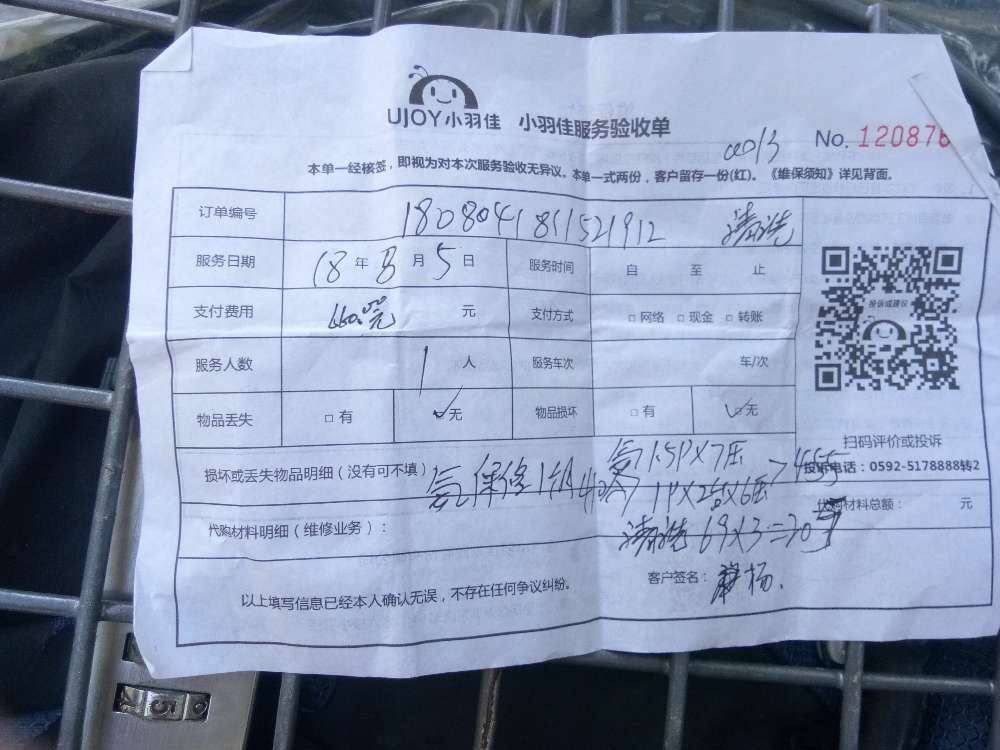 UJOY小羽佳 小羽佳服务验收单
0013
No. 120876
本单一经核签，即视为对本次服务验收无异议。本单一式两份，客户留存一份(红)。《维保须知》详见背面。
订单编号 1808041811521912 清洗
服务日期 18年8月5日 服务时间 自 至 止
支付费用 660.00元 元 支付方式 □网络 □现金 □转账
服务人数 1 人 服务车次 车/次
物品丢失 □有 ✓无 物品损坏 □有 ✓无
投诉或建议
扫码评价或投诉
投诉电话：0592-5178888转2
损坏或丢失物品明细（没有可不填）
氨保修1个月
氨1.5P×7压
1P×2台×6压 >455
代购材料总额： 元
代购材料明细（维修业务）：
清洗69×3=205
以上填写信息已经本人确认无误，不存在任何争议纠纷。
客户签名：
杨
5